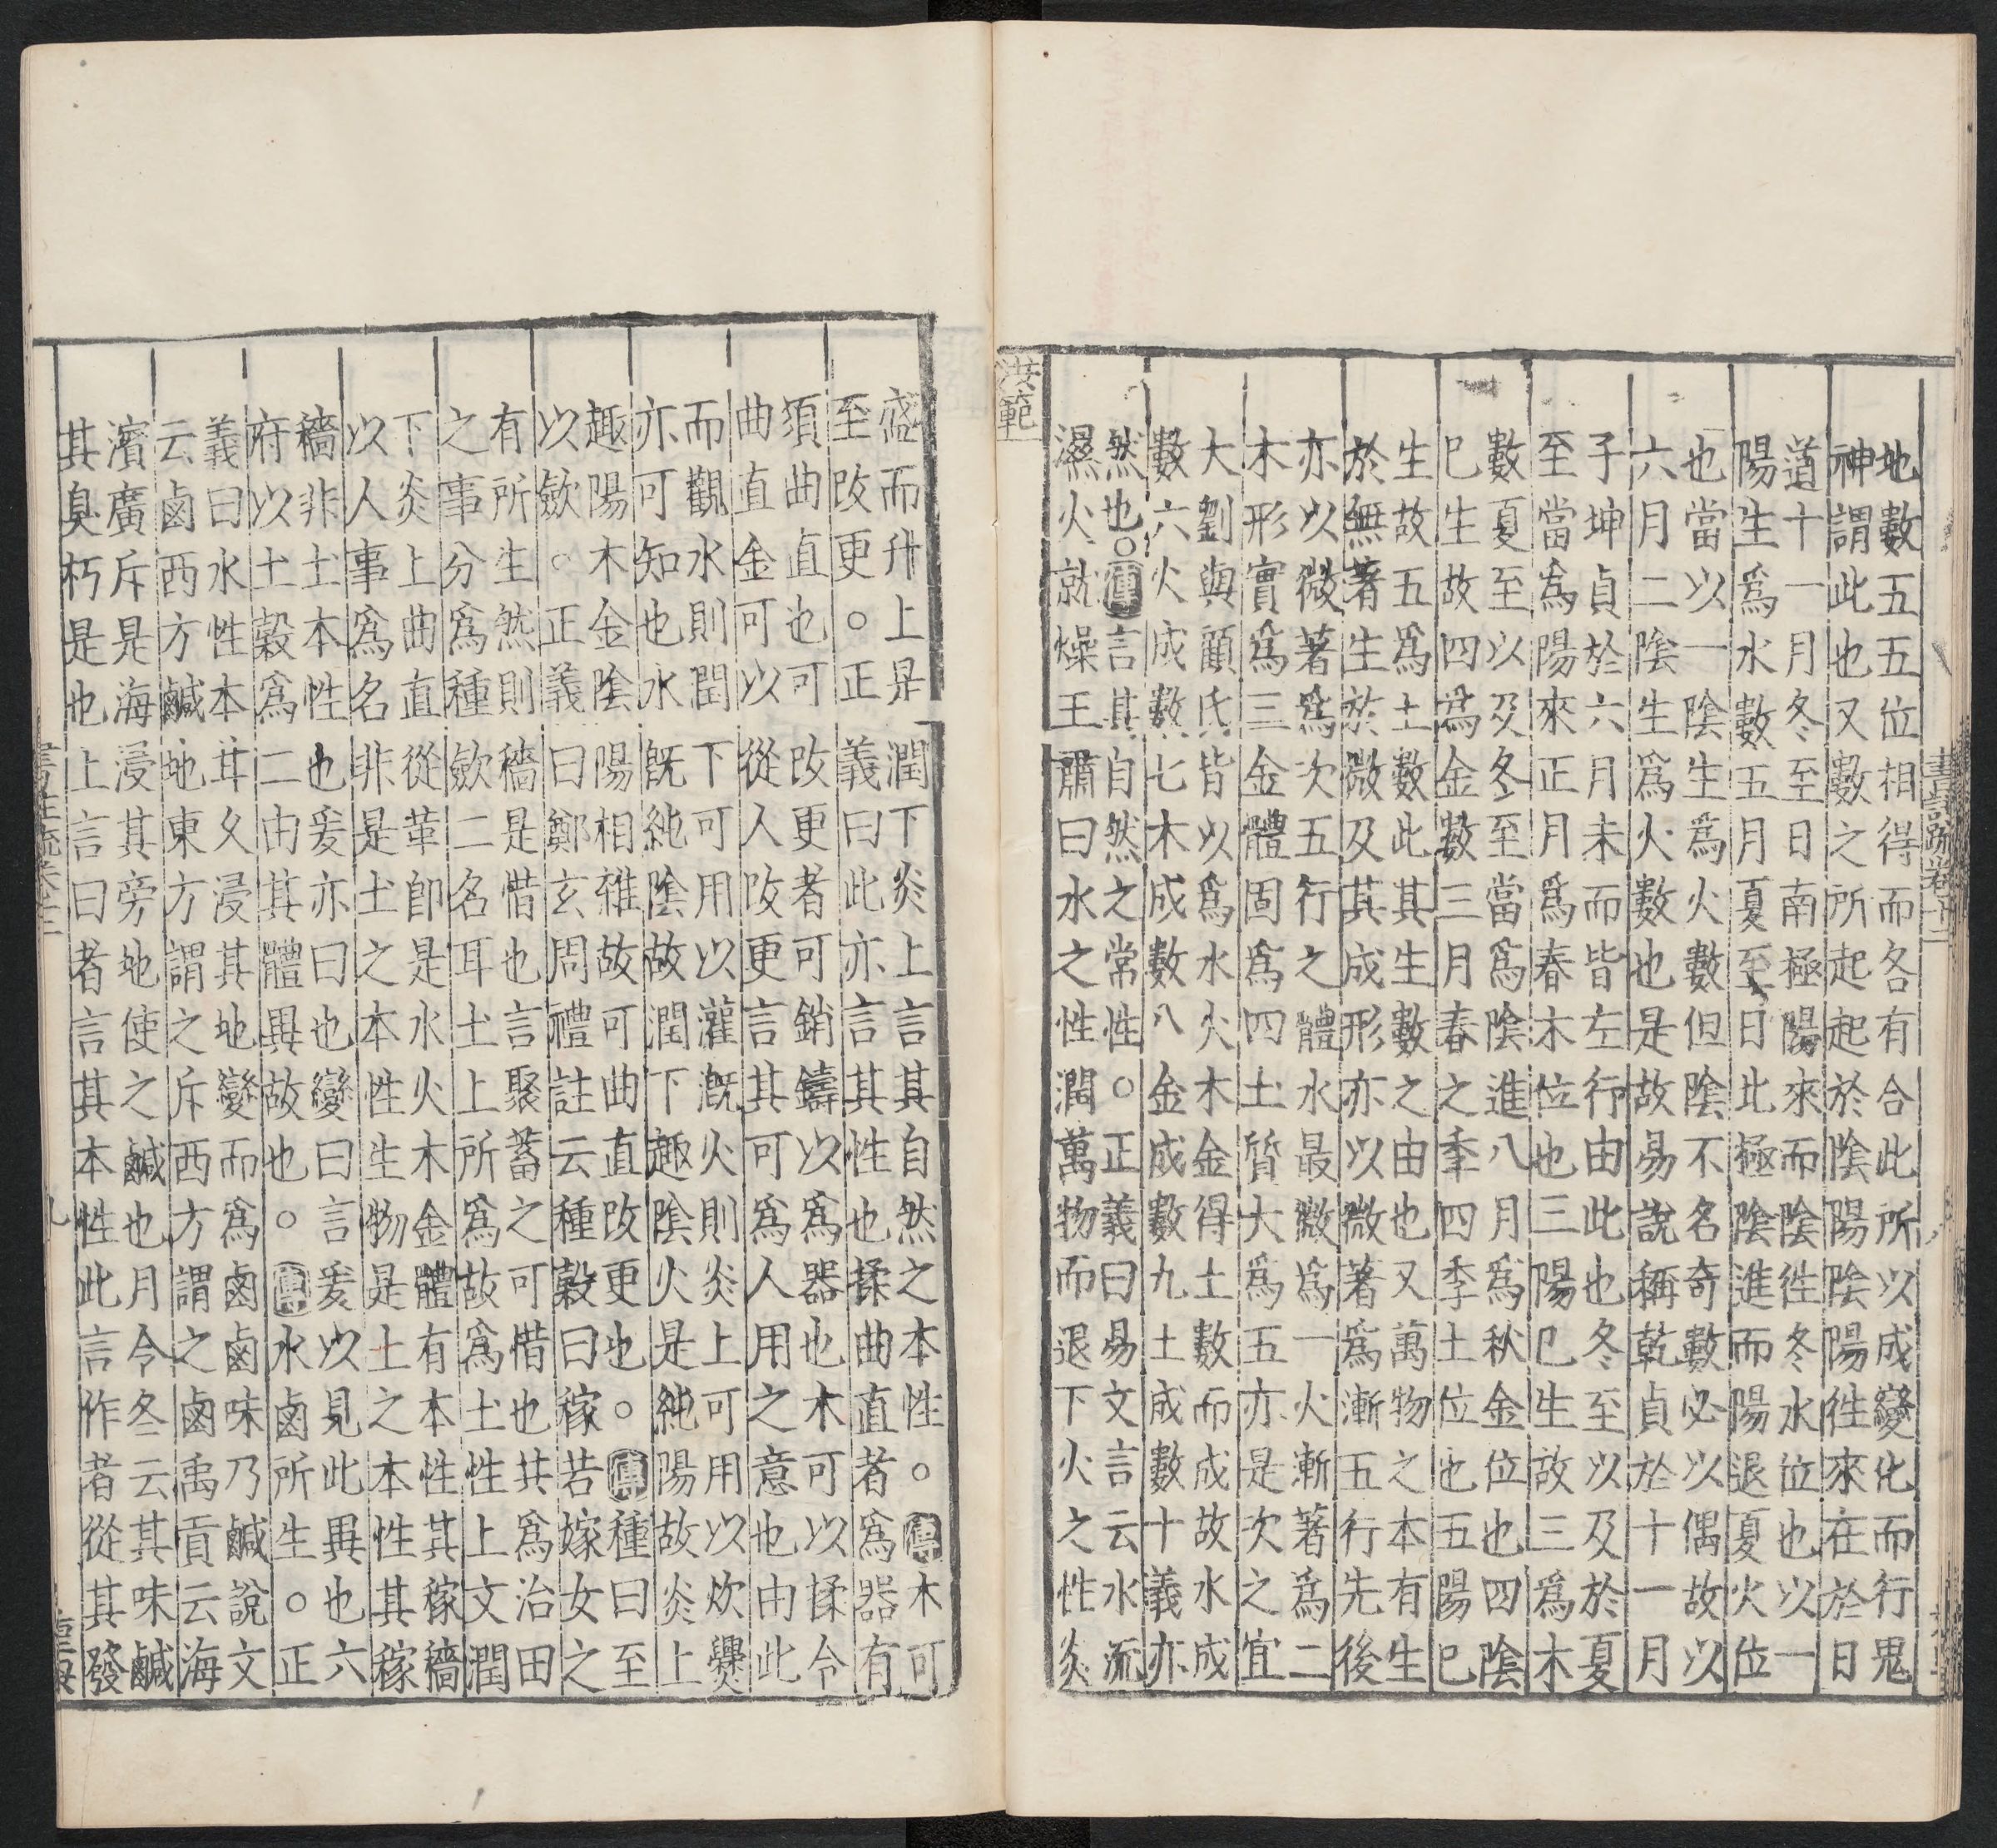 地數五五位相得而各有合此所以成變化而行鬼
神謂此也又數之所起起於陰陽陰陽徃來在於日
道十一月冬至日南極陽來而陰徃冬水位也以一
陽生爲水數五月夏至日北極陰進而陽退夏火位
也當以一陰生爲火數但陰不名奇數必以偶故以
六月二陰生爲火數也是故易說稱乾貞於十一月
子坤貞於六月未而皆左行由此也冬至以及於夏
至當爲陽來正月爲春木位也三陽巳生故三爲木
數夏至以及冬至當爲陰進八月爲秋金位也四陰
巳生故四爲金數三月春之季四季土位也五陽巳
生故五爲土數此其生數之由也又萬物之本有生
於無著生於微及其成形亦以微著爲漸五行先後
亦以微著爲次五行之體水最微爲一火漸著爲二
木形實爲三金體固爲四土質大爲五亦是次之宜
大劉與顧氏皆以爲水火木金得土數而成故水成
數六火成數七木成數八金成數九土成數十義亦
然也。傳言其自然之常性。正義曰易文言云水流
濕火就燥王肅曰水之性潤萬物而退下火之性炎
洪範
盛而升上是潤下炎上言其自然之本性。傳木可
至改更。正義曰此亦言其性也揉曲直者爲器有
須曲直也可改更者可銷鑄以爲器也木可以揉令
曲直金可以從人改更言其可爲人用之意也由此
而觀水則閏下可用以灌漑火則炎上可用以炊爨
亦可知也水旣純陰故潤下趣陰火是純陽故炎上
趣陽木金陰陽相雜故可曲直改更也。傳種曰至
以斂。正義曰鄭玄周禮註云種穀曰稼若嫁女之
有所生然則穡是惜也言聚蓄之可惜也共爲治田
之事分爲種斂二名耳土上所爲故爲土性上文潤
下炎上曲直從革卽是水火木金體有本性其稼穡
以人事爲名非是土之本性生物是土之本性其稼
穡非土本性也爰亦曰也變曰言爰以見此異也六
府以土穀爲二由其體異故也。傳水鹵所生。正
義曰水性本甘久浸其地變而爲鹵鹵味乃鹹說文
云鹵西方鹹地東方謂之斥西方謂之鹵禹貢云海
濱廣斥是海浸其旁地使之鹹也月令冬云其味鹹
其臭朽是也上言曰者言其本性此言作者從其發